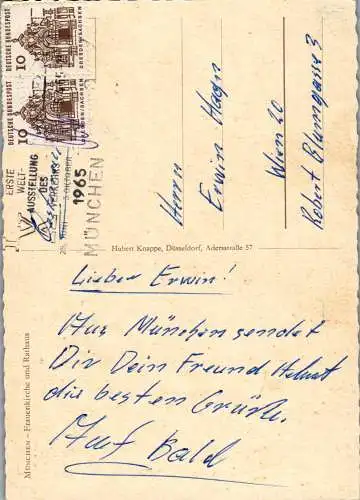 DEUTSCHE BUNDESPOST
10
DRESDEN/SACHSEN
DEUTSCHE BUNDESPOST
10
DRESDEN/SACHSEN
ERSTE
WELT-
AUSSTELLUNG
DES
VERKEHRS
25. JUNI 3. OKTOBER
1965
MÜNCHEN
Herrn
Erwin
Wien 20
Robert Blumgasse 3
Hubert Knappe, Düsseldorf, Adersstraße 57
MÜNCHEN – Frauenkirche und Rathaus
Lieber Erwin!
Aus München sendet
Dir Dein Freund Helmut
die besten Grüße.
Auf Bald